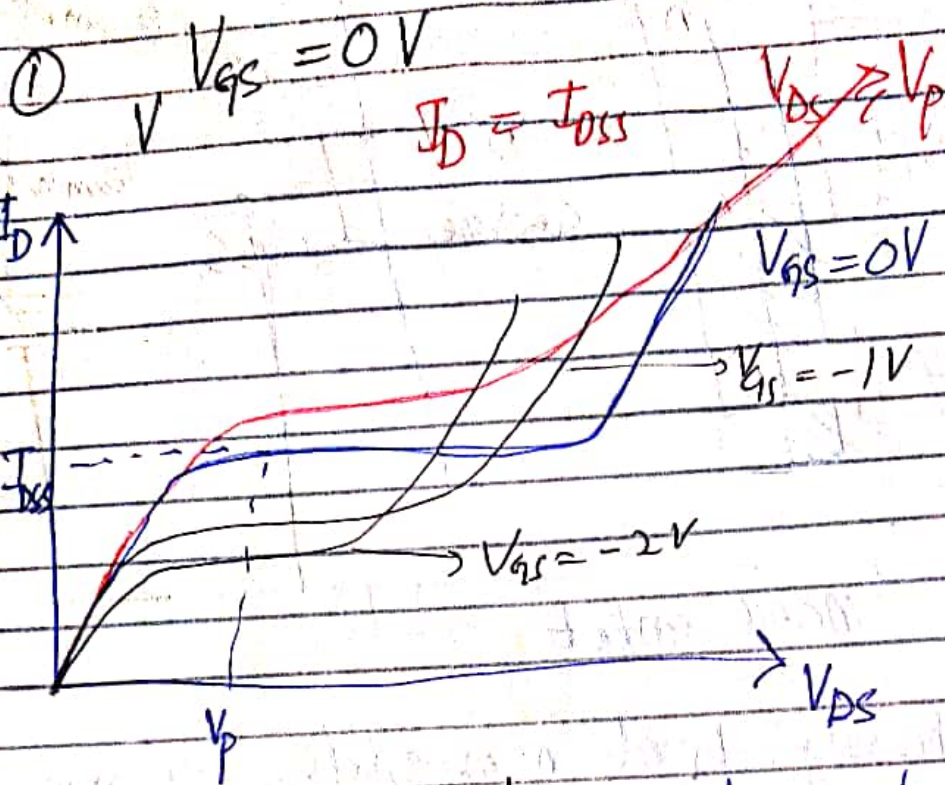 ① V_GS = 0 V
V
I_D = I_DSS
V_DS ≥ V_P
I_D
V_GS = 0V
V_GS = -1V
I_DSS
V_GS = -2V
V_P
V_DS